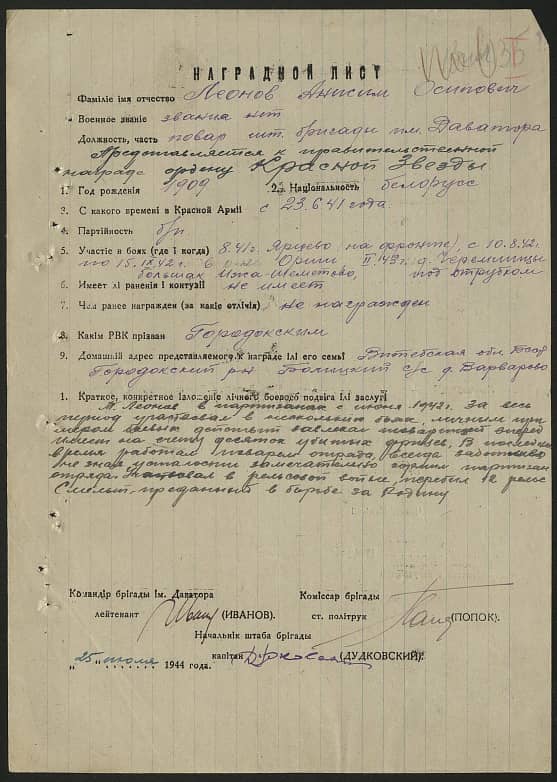 НАГРАДНОЙ ЛИСТ
Фаміліе імя отчество Леонов Анисим Осипович
Военное званіе звания нет
Должность, часть повар шт. бригады им. Даватора
Представляется к правительственной
награде ордену Красной Звезды
1. Год рождения 1909 2. Національность белорусс
3. С какого времені в Красной Армії с 23.6 41 года
4. Партійность б/п
5. Участіе в боях (где і когда) 8.41г. Ярцево, на фронте, с 10.8.42г.
по 15.IX.42г. в Орши, II.43г. д. Черемшицы
6. Имеет лі раненія і контузії не имеет
7. Чем ранее награжден (за какіе отлічія) не награжден
8. Какім РВК прізван Городокским
9. Домашній адрес представляемого к награде ілі его семьі Витебская обл. БССР
Городокский р-н с/с д. Варварово
1. Краткое, конкретное ізложеніе лічного боевого подвіга ілі заслугі
А. Леонов в партизанах с июня 1942г. За весь
период участвовал в нескольких боях, личным при-
мером боевых действий завлекал товарищей вперед
имеет на счету десяток убитых фрицев. В последнее
время работал поваром отряда, всегда заботливо
не зная усталости замечательно кормил партизан
отряда. в рельсовой войне, перебил 12 рельс
Смелый, преданный в борьбе за Родину
Командір брігады ім. Даватора
Коміссар брігады
лейтенант (ИВАНОВ).
ст. політрук (ПОПОК).
Начальнік штаба брігады
капітан (ДУДКОВСКИЙ).
„25" июля 1944 года.